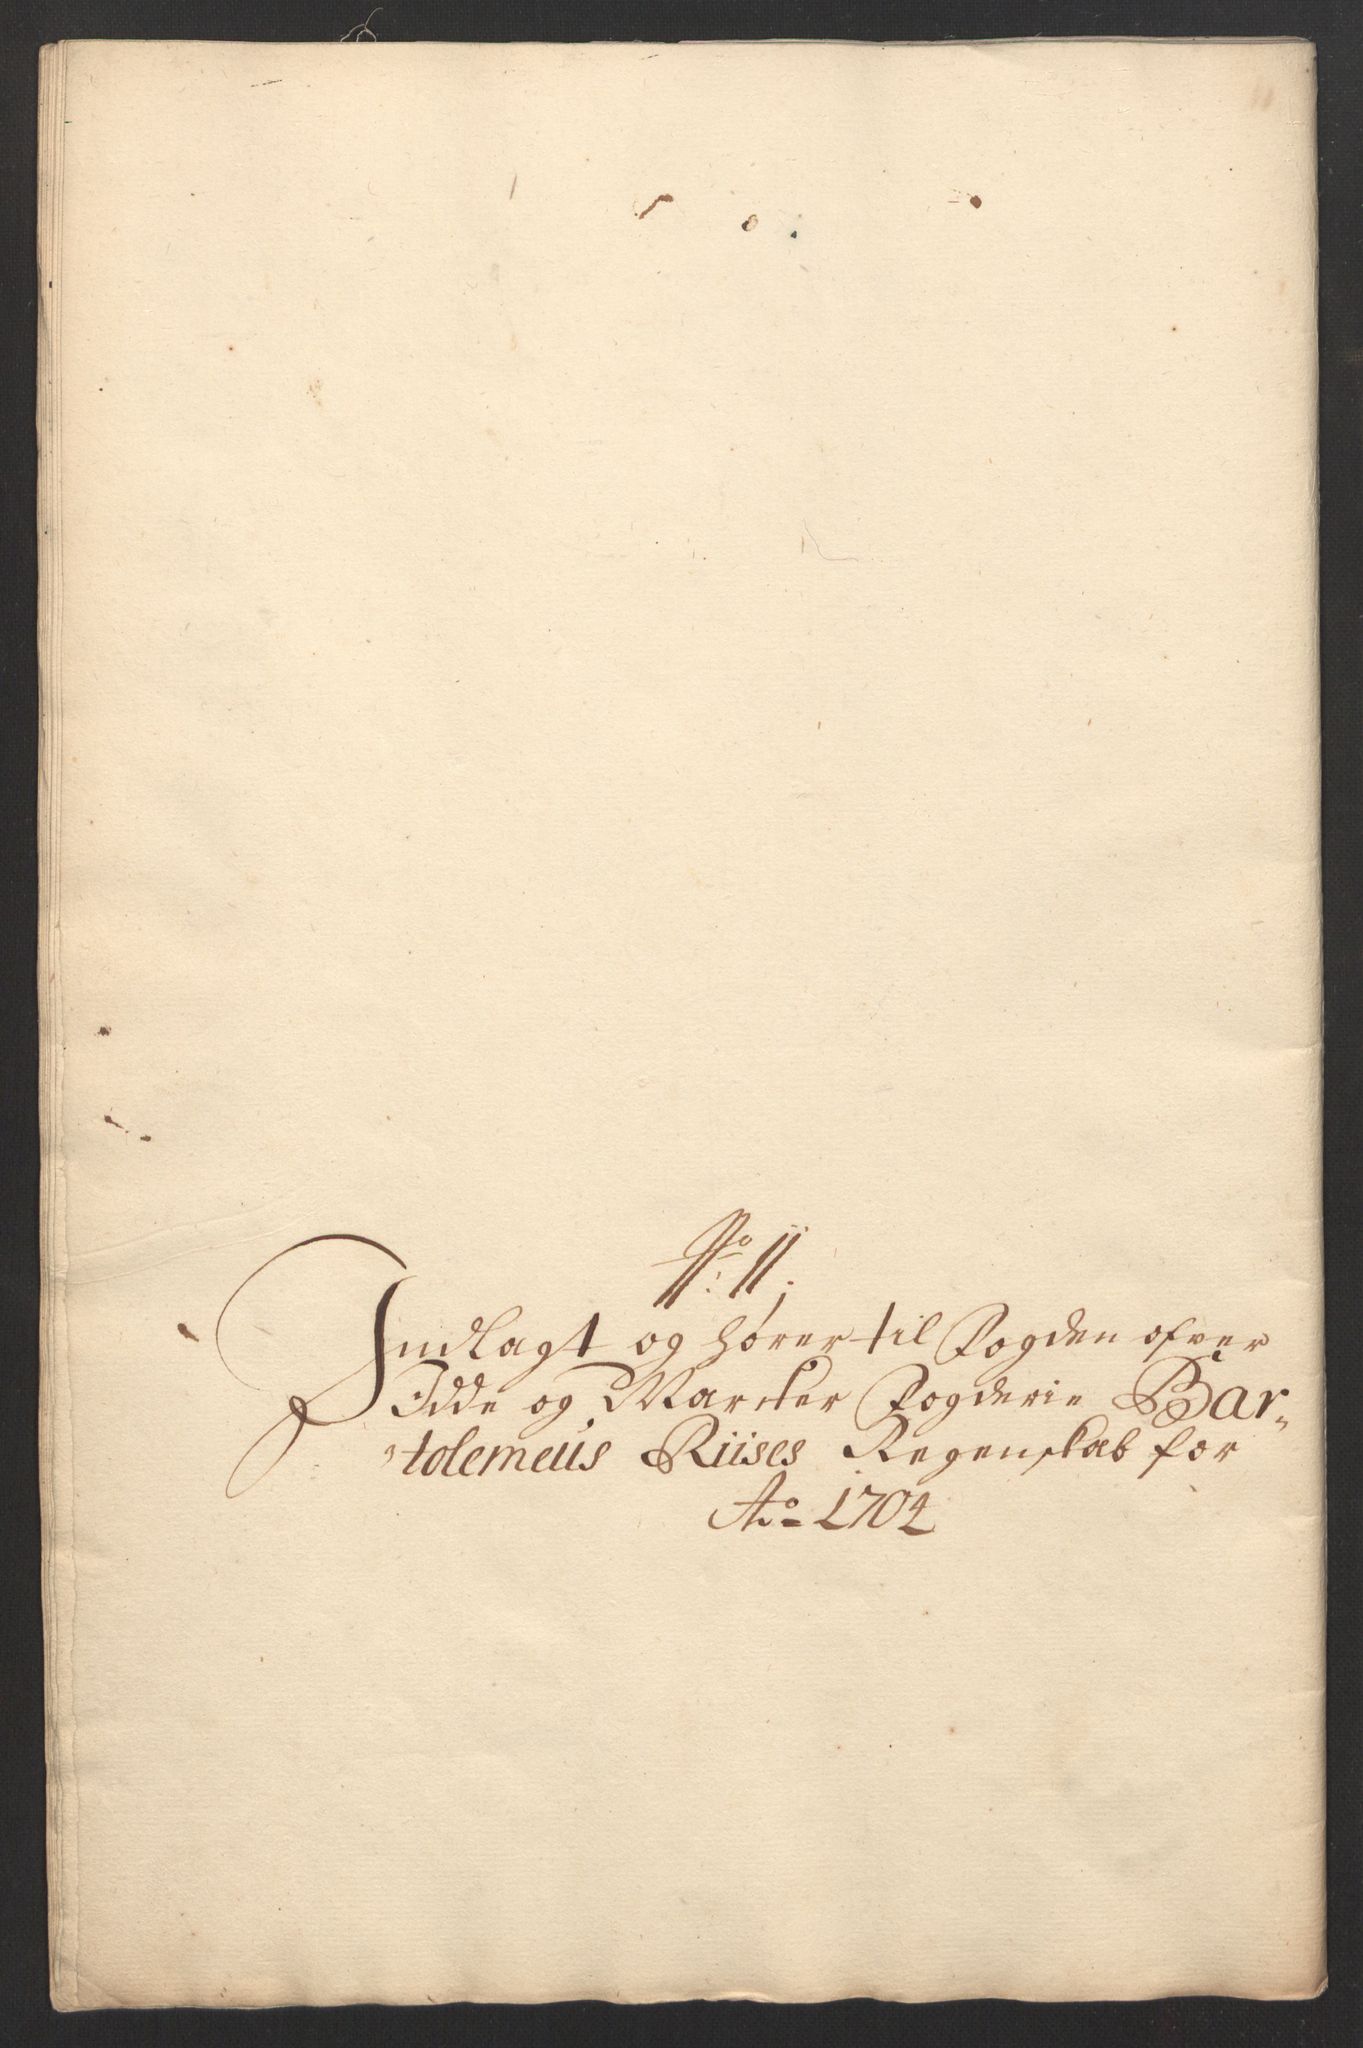 No: 11.
Indlagt og hører til Fogden ofver
Idde og Marcker Fogderie Bar-
tolemeus Riises Regenskab for
Ao 1704